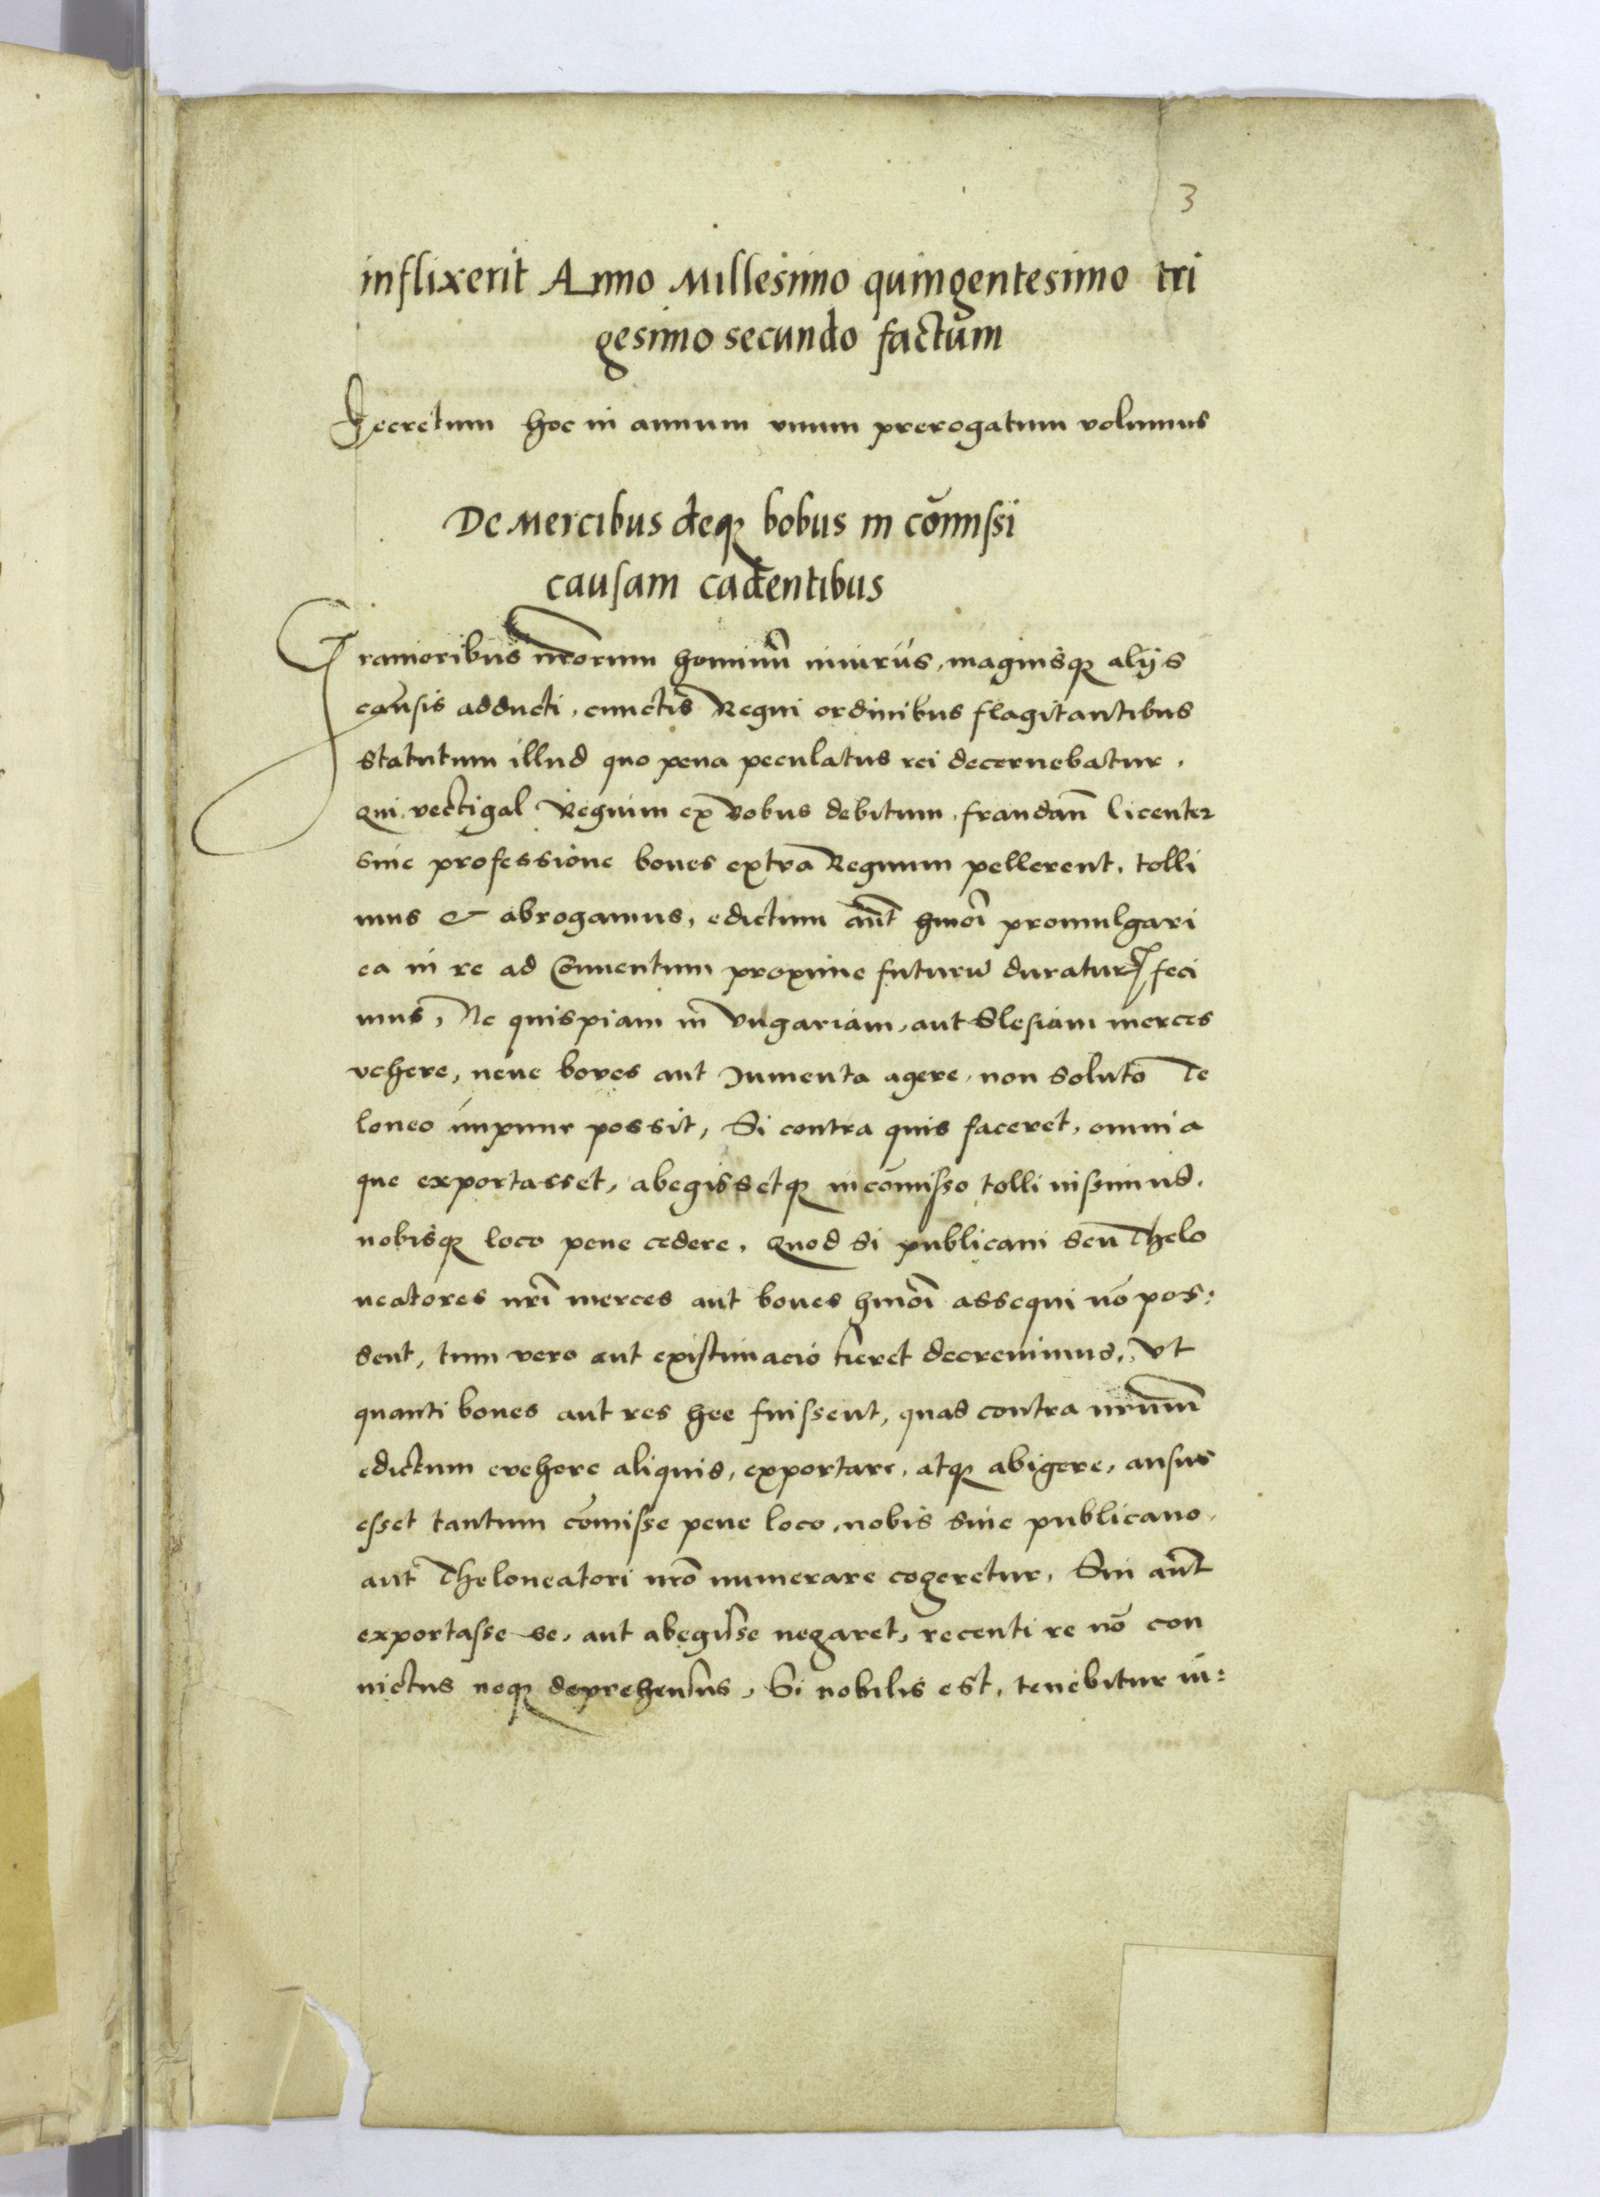 3
inflixerit Anno Millesimo quingentesimo tri
gesimo secundo factum
Decretum hoc in annum vnum prerogatum volumus
De Mercibus deqꝫ bobus in cōmissi
causam cadentibus
Grauioribus nr̄orum hominū iniurijs, magnisqꝫ alijs
causis adducti, cunctis Regni ordinibus flagitantibus
statutum illud quo pena peculatus rei decernebatur,
Qui vectigal Regium ex bobus debitum, fraudan̄ licenter
sine professione boues extra Regnum pellerent, tolli
mus & abrogamus, edictum aūt hmōi promulgari
ea in re ad Conuentum proxime futurū duraturꝫ feci
mus, Ne quispiam in Vngariam, aut Slesiam merces
vehere, neue boves aut Jumenta agere, non soluto Te
loneo impune possit, Si contra quis faceret, omnia
que exportasset, abegissetqꝫ in cōmisso tolli iussimus,
nobisqꝫ loco pene cedere, Quod si publicani seu Thelo
neatores nr̄i merces aut boues hmōi assequi nō pos:
sent, tum vero aut existimacio fieret decreuimus, Vt
quanti boues aut res hee fuissent, quas contra nr̄um
edictum evehere aliquis, exportare, atqꝫ abigere, ausus
esset tantum cōmisse pene loco, nobis siue publicano,
aut Theloneatori nr̄o numerare cogeretur, Sin aūt
exportasse se, aut abegisse negaret, recenti re nō con
uictus neqꝫ deprehensus, Si nobilis est, tenebitur iu: